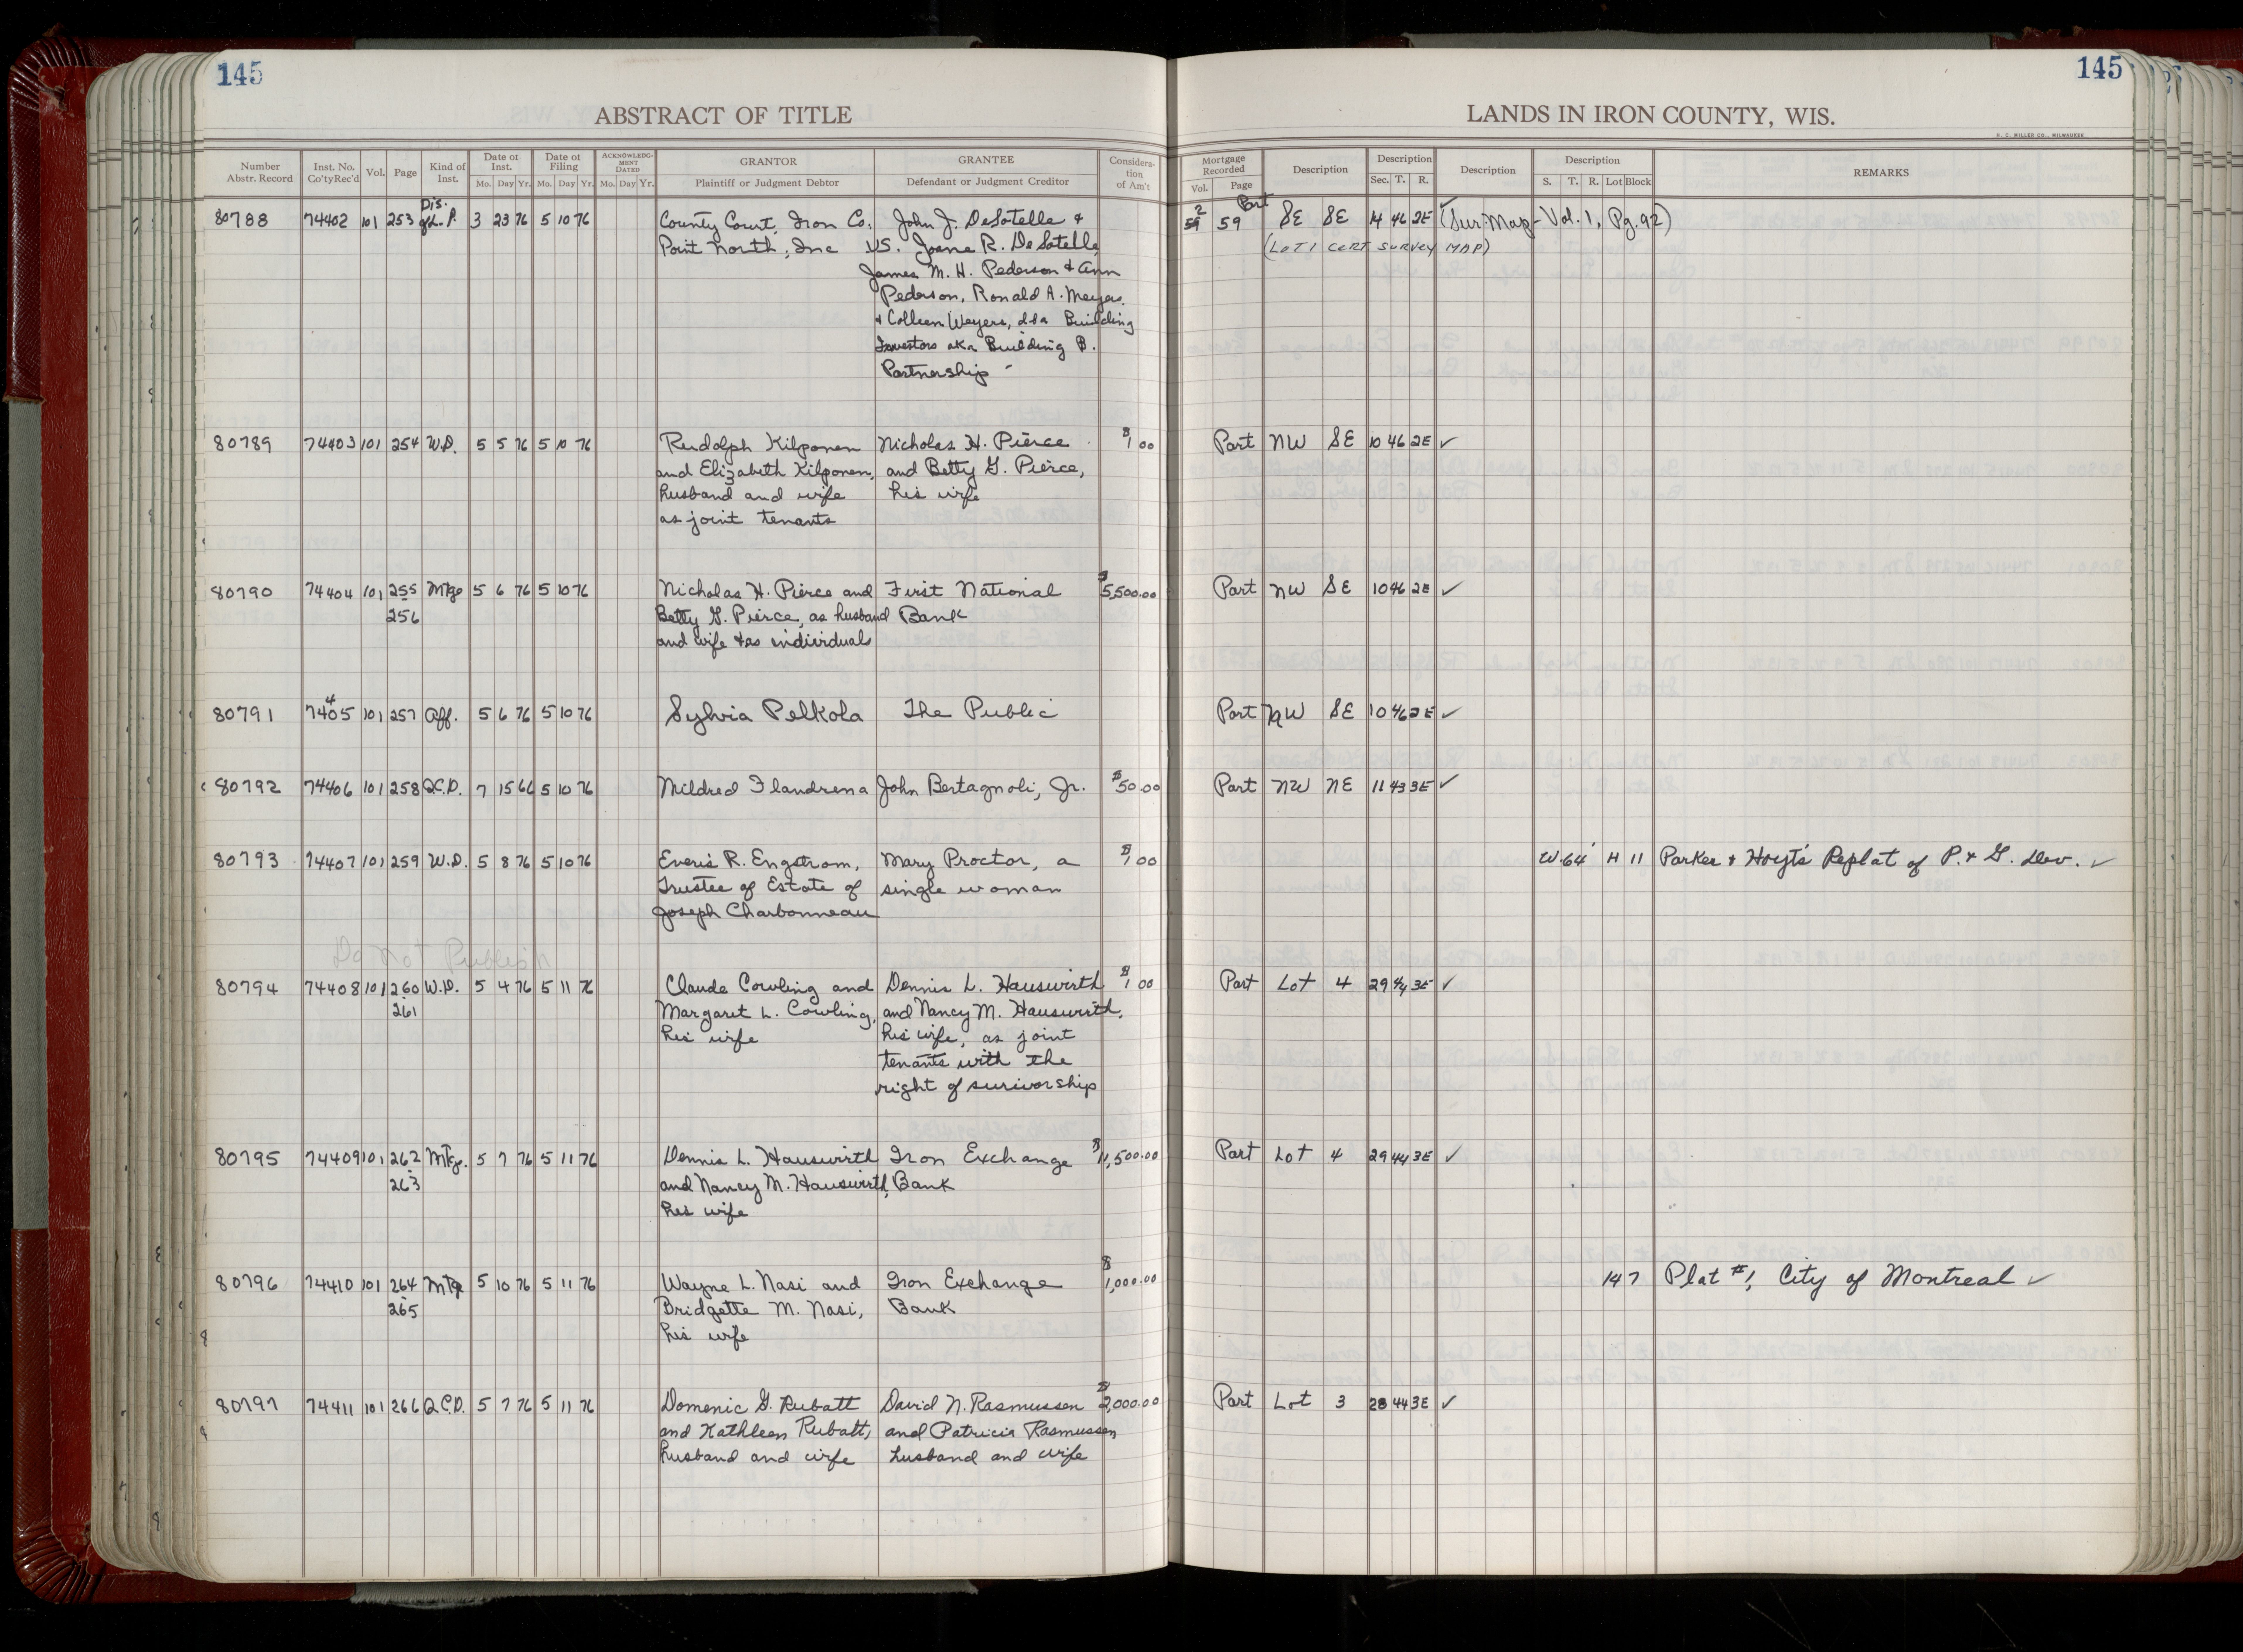 145
ABSTRACT OF TITLE
Number Abstr. Record
Inst. No. Co'ty Rec'd
Vol.
Page
Kind of Inst.
Date of Inst.
Mo. Day Yr.
Date of Filing
Mo. Day Yr.
ACKNOWLEDG-MENT DATED
Mo. Day Yr.
GRANTOR
Plaintiff or Judgment Debtor
GRANTEE
Defendant or Judgment Creditor
Considera-tion of Am't
145
LANDS IN IRON COUNTY, WIS.
H. C. MILLER CO., MILWAUKEE
Mortgage Recorded
Vol. Page
Description
Description
Sec. T. R.
Description
Description
S. T. R. Lot Block
REMARKS
Dis.
80788 74402 101 253 of L.P. 3 23 76 5 10 76 County Court, Iron Co. John J. DeSotelle & 2 59 Part SE SE 14 46 2E (Sur. Map - Vol. 1, Pg. 92)
Point North, Inc VS. Joane R. DeSotelle, (LOT 1 CERT SURVEY MAP)
James M. H. Pederson & Ann
Pederson, Ronald A. Meyers
& Colleen Weyers, dba Building
Investors aka Building B.
Partnership
80789 74403 101 254 W.D. 5 5 76 5 10 76 Rudolph Kilponen Nicholas H. Pierce $1.00 Part NW SE 10 46 2E ✓
and Elizabeth Kilponen, and Betty G. Pierce,
husband and wife his wife
as joint tenants
80790 74404 101 255 Mtge 5 6 76 5 10 76 Nicholas H. Pierce and First National $5,500.00 Part NW SE 10 46 2E ✓
256 Betty G. Pierce, as husband Bank
and wife & as individuals
80791 74405 101 257 Aff. 5 6 76 5 10 76 Sylvia Pelkola The Public Part NW SE 10 46 2E ✓
80792 74406 101 258 Q.C.D. 7 15 66 5 10 76 Mildred Flandrena John Bertagnoli, Jr. $50.00 Part NW NE 11 43 3E ✓
80793 74407 101 259 W.D. 5 8 76 5 10 76 Everis R. Engstrom, Mary Proctor, a $1.00 W.64' H 11 Parker & Hoyt's Replat of P. & G. dev. ✓
Trustee of Estate of single woman
Joseph Charbonneau
Do Not Publish
80794 74408 101 260 W.D. 5 4 76 5 11 76 Claude Cowling and Dennis L. Hauswirth $1.00 Part Lot 4 29 44 3E ✓
261 Margaret L. Cowling, and Nancy M. Hauswirth,
his wife his wife, as joint
tenants with the
right of surivorship
80795 74409 101 262 Mtge. 5 7 76 5 11 76 Dennis L. Hauswirth Iron Exchange $11,500.00 Part Lot 4 29 44 3E ✓
263 and Nancy M. Hauswirth, Bank
his wife
80796 74410 101 264 Mtge 5 10 76 5 11 76 Wayne L. Nasi and Iron Exchange $1,000.00 147 Plat #1, City of Montreal ✓
265 Bridgette M. Nasi, Bank
his wife
80797 74411 101 266 Q.C.D. 5 7 76 5 11 76 Domenic G. Rubatt David N. Rasmussen $2,000.00 Part Lot 3 28 44 3E ✓
and Kathleen Rubatt, and Patricia Rasmussen
husband and wife husband and wife